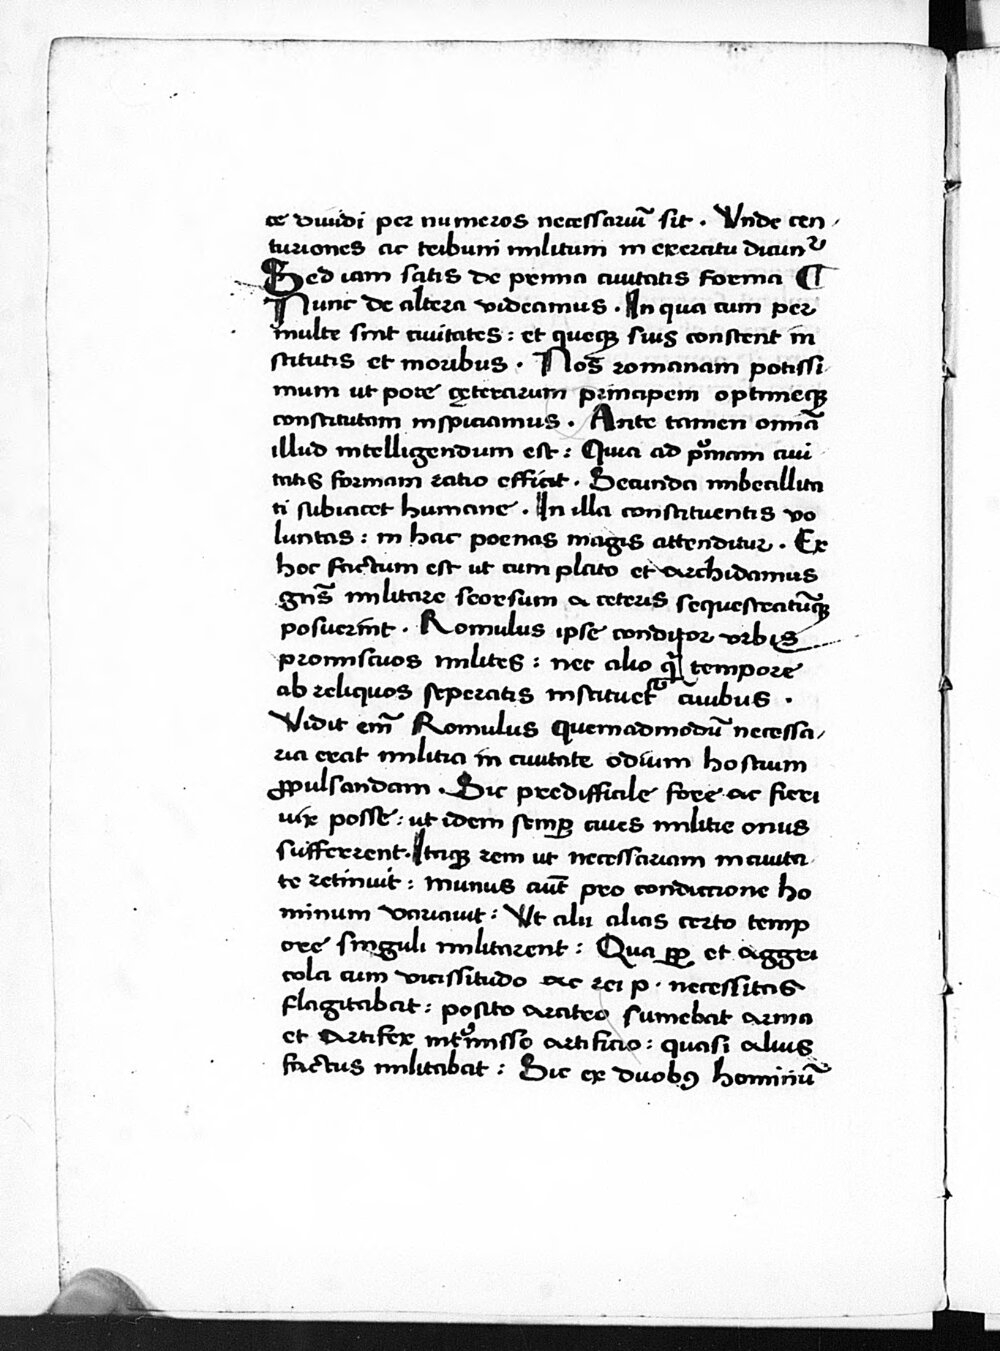 te diuidi per numeros necessariū sit. Vnde cen
turiones ac tribuni militum in exercitu dicunᵗ
Sed iam satis de prima ciuitatis forma ¶
Nunc de altera videamus. In qua cum per
multe sint ciuitates: et queqȝ suis constent in
stitutis et moribus. Nos romanam potissi
mum ut pote ceterarum principem optimeqȝ
constitutam inspiciamus. Ante tamen omīa
illud intelligendum est: Quia ad pͥmam ciui
tatis formam ratio efficit. Secunda imbecillita
ti subiacet humane. In illa constituentis vo
luntas: in hac poenas magis attenditur. Ex
hoc factum est ut cum plato et archidamus
gn̄s militare seorsum a ceteris sequestratūqȝ
posuerint. Romulus ipse conditor vrbis
promiscuos milites: nec alio q̄ tempore
ab reliquos seperatis instituer̄t ciuibus.
Vidit em̄ Romulus quemadmodū necessa
ria erat militia in ciuitate odium hostium
ꝓpulsandam. Sic predifficile fore ac fieri
vix posse: ut idem semꝑ ciues militie onus
sufferrent. Itaqȝ rem ut necessariam in ciuita
te retinuit: munus aūt pro condicione ho
minum variauit: Vt alii alias certo temp
ore singuli militarent: Qua ꝓꝑ et aggri
cola cum vicissitudo ac rei p. necessitas
flagitabat: posito aratro sumebat arma
et artifex int͛misso artificio: quasi alius
factus militabat: Sic ex duobꝰ hominū